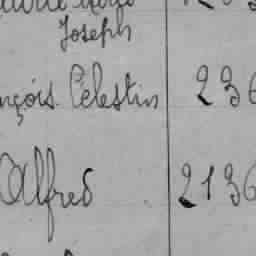 Joseph
nçois Célestin 236
Alfred 2136